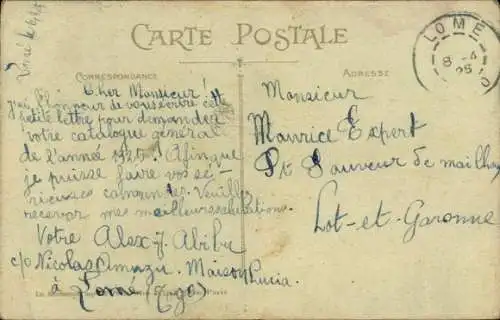 CARTE POSTALE
CORRESPONDANCE
ADRESSE
LOME
8 - 4
25
Cher Monsieur!
J'ai l'honneur de vous écrire cette
petite lettre pour demander
votre catalogue général
de l'année 1925. Afinque
je puisse faire vos sé-
rieuses commandes. Veuillez
recevoir mes meilleures salutations.
Votre Alex J. Abibu
c/o Nicolas Amuzu. Maison Lucia.
à Lomé (Togo)
Monsieur
Maurice Expert
St Sauveur de meilhan
Lot-et-Garonne